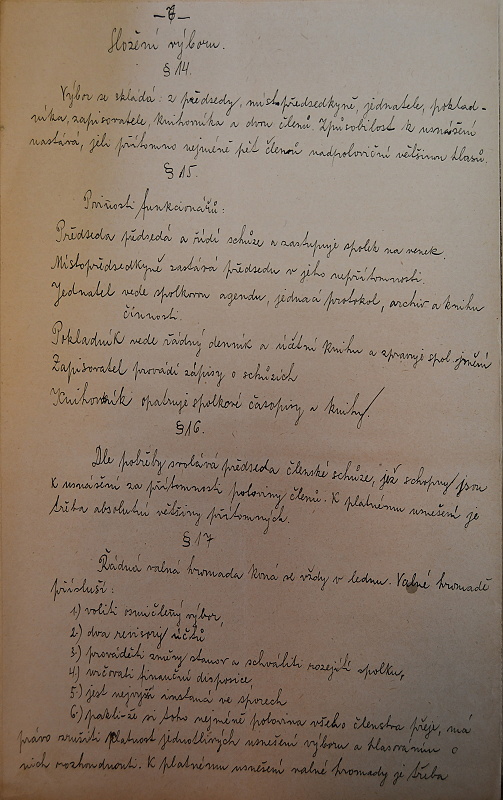 —6—
Složení výboru.
§ 14.
Výbor se skládá: z předsedy, místopředsedkyně, jednatele, poklad-
níka, zapisovatele, knihovníka a dvou členů. Způsobilost k usnášení
nastává, jeli přítomno nejméně pět členů nadpoloviční většinou hlasů.
§ 15.
Povinosti funkcionářů:
Předseda předsedá a řídí schůze a zastupuje spolek na venek.
Místopředsedkyně zastává předsedu v jeho nepřítomnosti.
Jednatel vede spolkovou agendu, jednací protokol, archiv a knihu
činnosti
Pokladník vede řádný denník a účetní knihu a spravuje spol. jmění
Zapisovatel provádí zápisy o schůzích
Knihovník opatruje spolkové časopisy a knihy.
§ 16.
Dle potřeby svolává předseda členské schůze, jež schopny jsou
k usnášení za přítomnosti poloviny členů. K platnému usnešení je
třeba absolutní většiny přítomných.
§ 17
Řádná valná hromada koná se vždy v lednu. Valné hromadě
přísluší:
1) voliti osmičlený výbor,
2) dva revisory účtů
3) prováděti změny stanov a schváliti rozejití spolku,
4) určovati finanční disposice
5) jest nejvyšší instancí ve sporech
6) pakli-že si toho nejméně polovina všeho členstva přeje, má
právo zrušiti platnost jednotlivých usnešení výboru a hlasováním o
nich rozhodnouti. K platnému usnešení valné hromady je třeba